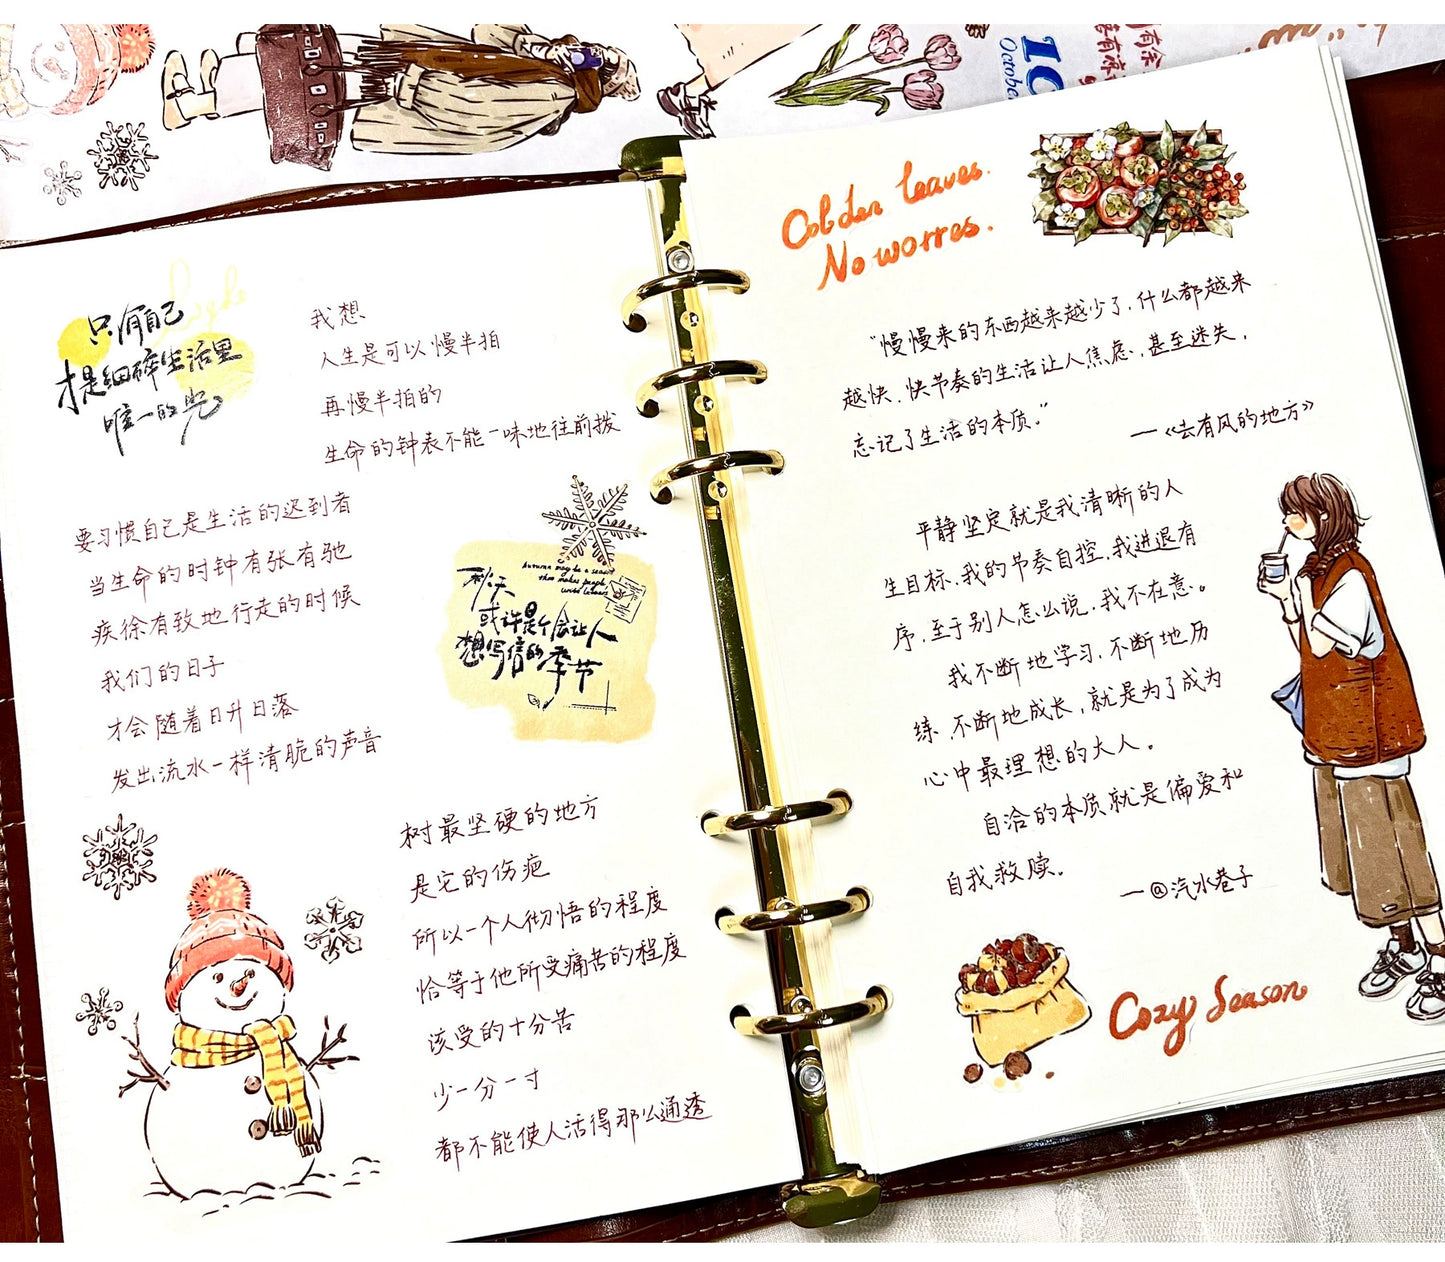 只有自己
才是细碎生活里
唯一的光
我想
人生是可以慢半拍
再慢半拍的
生命的钟表不能一味地往前拨
要习惯自己是生活的迟到者
当生命的时钟有张有驰
疾徐有致地行走的时候
我们的日子
才会随着日升日落
发出流水一样清脆的声音
Autumn may be a season
that makes people
write letters
秋天
或许是个会让人
想写信的季节
树最坚硬的地方
是它的伤疤
所以一个人彻悟的程度
恰等于他所受痛苦的程度
该受的十分苦
少一分一寸
都不能使人活得那么通透
10
October
Golden leaves.
No worres.
“慢慢来的东西越来越少了，什么都越来
越快，快节奏的生活让人焦虑，甚至迷失，
忘记了生活的本质。”
—《去有风的地方》
平静坚定就是我清晰的人
生目标，我的节奏自控，我进退有
序，至于别人怎么说，我不在意。
我不断地学习，不断地历
练，不断地成长，就是为了成为
心中最理想的大人。
自洽的本质就是偏爱和
自我救赎。
—@汽水巷子
Cozy Season